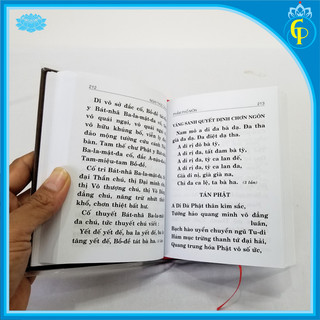 272
Dĩ vô sở đắc cố, Bồ-đề
y Bát-nhã Ba-la-mật-đa cố,
vô quái ngại, vô quái
vô hữu khủng bố, viễn ly
đảo mộng tưởng cứu cánh
bàn. Tam thế chư Phật y
Ba-la-mật-đa cố, đắc A-nậu-
Tam-miệu-tam Bồ-đề.
Cố tri Bát-nhã Ba-la-mật
đại Thần chú, thị Đại minh
thị Vô thượng chú, thị Vô
đẳng chú, năng trừ nhất
khổ, chơn thiệt bất hư.
Cố thuyết Bát-nhã Ba-la
đa chú, tức thuyết chú viết:
Yết đế yết đế, ba la yết đế,
tăng yết đế, Bồ-đề tát bà ha.
273
VÃNG SANH QUYẾT ĐỊNH CHƠN NGÔN
Nam mô a di đà bà dạ. Đa tha
già đa dạ. Đa điệt dạ tha.
A di rị đô bà tỳ,
A di rị đa, tất đam bà tỳ,
A di rị đa, tỳ ca lan đế,
A di rị đa, tỳ ca lan đa,
Già di nị, già già na,
Chỉ đa ca lệ, ta bà ha. (3 lần)
TÁN PHẬT
A Di Đà Phật thân kim sắc,
Tướng hảo quang minh vô đẳng
luân,
Bạch hào uyển chuyển ngũ Tu-di
Hám mục trừng thanh tứ đại hải,
Quang trung hóa Phật vô số ức,